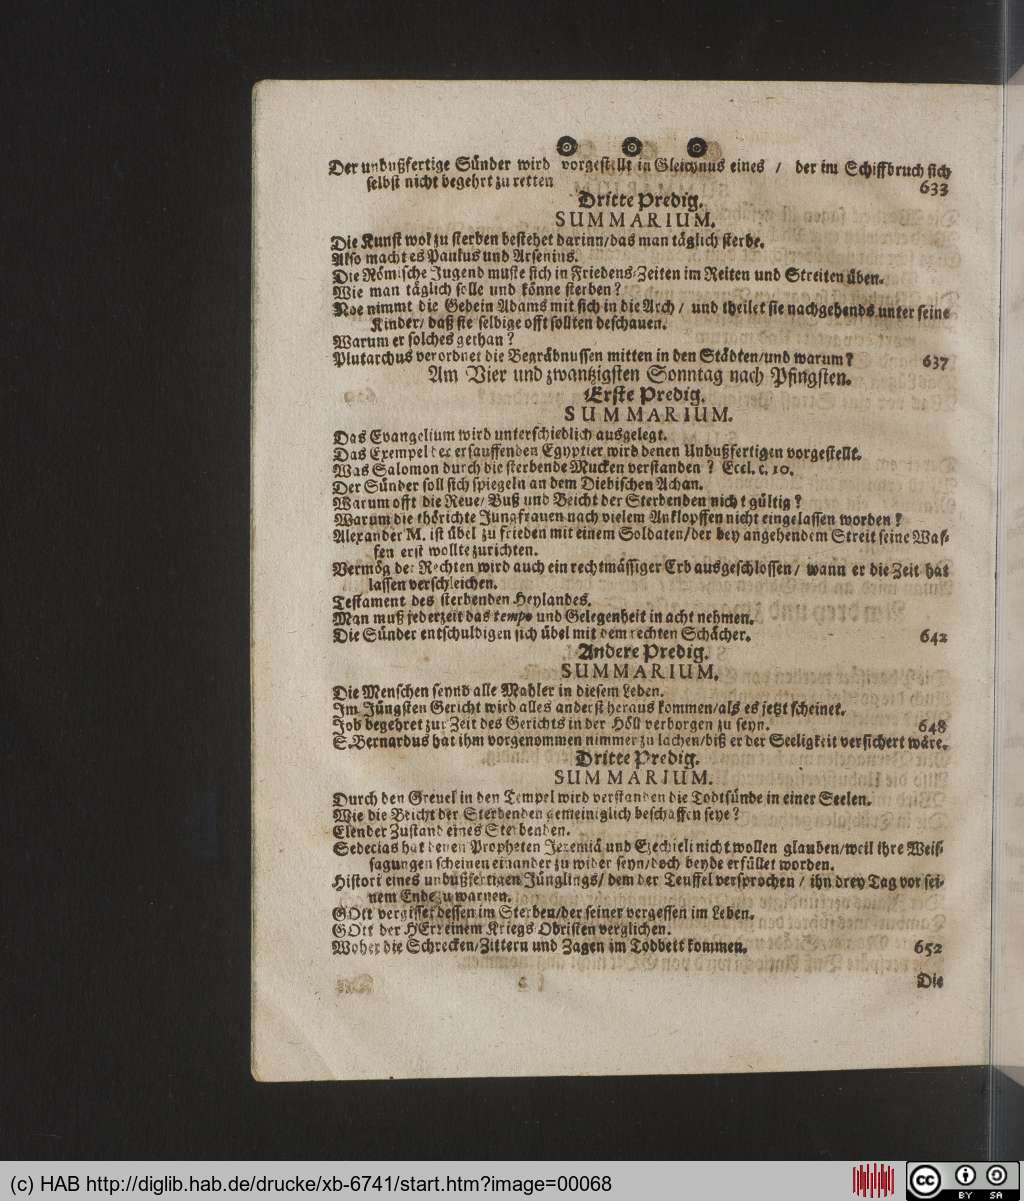 Der unbußfertige Sünder wird vorgestellt in Gleichnus eines / der im Schiffbruch sich
selbst nicht begehrt zu retten 633
Dritte Predig.
SUMMARIUM.
Die Kunst wol zu sterben bestehet darinn/das man täglich sterbe.
Also macht es Paulus und Arsenius.
Die Römische Jugend muste sich in Friedens-Zeiten im Reiten und Streiten üben.
Wie man täglich solle und könne sterben?
Noe nimmt die Gebein Adams mit sich in die Arch / und theilet sie nachgehends unter seine
Kinder/ daß sie selbige offt sollten beschauen.
Warum er solches gethan?
Plutarchus verordnet die Begräbnussen mitten in den Städten/und warum? 637
Am Vier und zwantzigsten Sonntag nach Pfingsten.
Erste Predig.
SUMMARIUM.
Das Evangelium wird unterschiedlich ausgelegt.
Das Exempel der ersauffenden Egyptier wird denen Unbußfertigen vorgestellt.
Was Salomon durch die sterbende Mucken verstanden? Eccl. c. 10.
Der Sünder soll sich spiegeln an dem Diebischen Achan.
Warum offt die Reue/ Buß und Beicht der Sterbenden nicht gültig?
Warum die thörichte Jungfrauen nach vielem Anklopffen nicht eingelassen worden?
Alexander M. ist übel zu frieden mit einem Soldaten/der bey angehendem Streit seine Waf-
fen erst wollte zurichten.
Vermög der Rechten wird auch ein rechtmässiger Erb ausgeschlossen/ wann er die Zeit hat
lassen verschleichen.
Testament des sterbenden Heylandes.
Man muß jederzeit das tempo und Gelegenheit in acht nehmen.
Die Sünder entschuldigen sich übel mit dem rechten Schächer. 642
Andere Predig.
SUMMARIUM.
Die Menschen seynd alle Mahler in diesem Leben.
Im Jüngsten Gericht wird alles anderst heraus kommen/als es jetzt scheinet.
Job begehret zur Zeit des Gerichts in der Höll verborgen zu seyn. 648
S. Bernardus hat ihm vorgenommen nimmer zu lachen/biß er der Seeligkeit versichert wäre.
Dritte Predig.
SUMMARIUM.
Durch den Greuel in den Tempel wird verstanden die Todtsünde in einer Seelen.
Wie die Beicht der Sterbenden gemeiniglich beschaffen seye?
Elender Zustand eines Sterbenden.
Sedecias hat denen Propheten Jeremiä und Ezechieli nicht wollen glauben/weil ihre Weis-
sagungen scheinen einander zu wider seyn/doch beyde erfüllet worden.
Histori eines unbußfertigen Jünglings/ dem der Teuffel versprochen / ihn drey Tag vor sei-
nem Ende zu warnen.
GOtt vergisset dessen im Sterben/der seiner vergessen im Leben.
GOtt der HErr einem Kriegs Obristen verglichen.
Woher die Schrecken/Zittern und Zagen im Todbett kommen. 652
Die
(c) HAB http://diglib.hab.de/drucke/xb-6741/start.htm?image=00068
cc BY SA